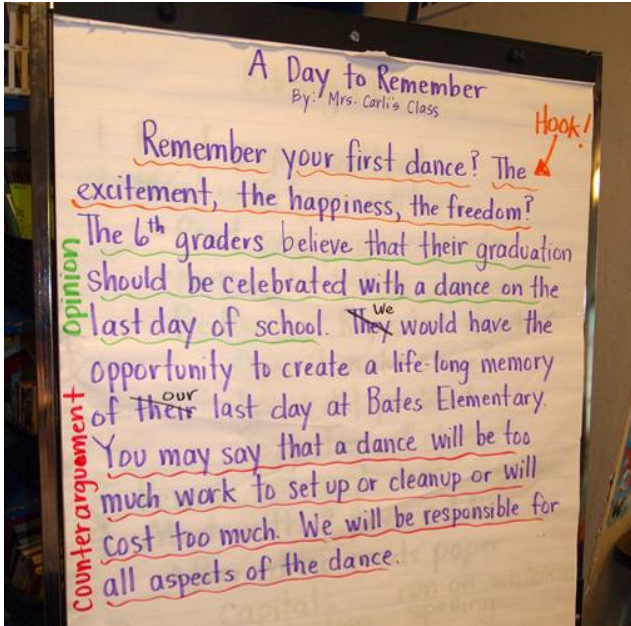 A Day to Remember
By: Mrs. Carli's Class
Hook!
Remember your first dance? The
excitement, the happiness, the freedom?
Opinion
The 6th graders believe that their graduation
should be celebrated with a dance on the
last day of school. They We would have the
opportunity to create a life-long memory
of their our last day at Bates Elementary.
Counterarguement
You may say that a dance will be too
much work to set up or cleanup or will
cost too much. We will be responsible for
all aspects of the dance.
paper
Capitals
run on sentence
spelling